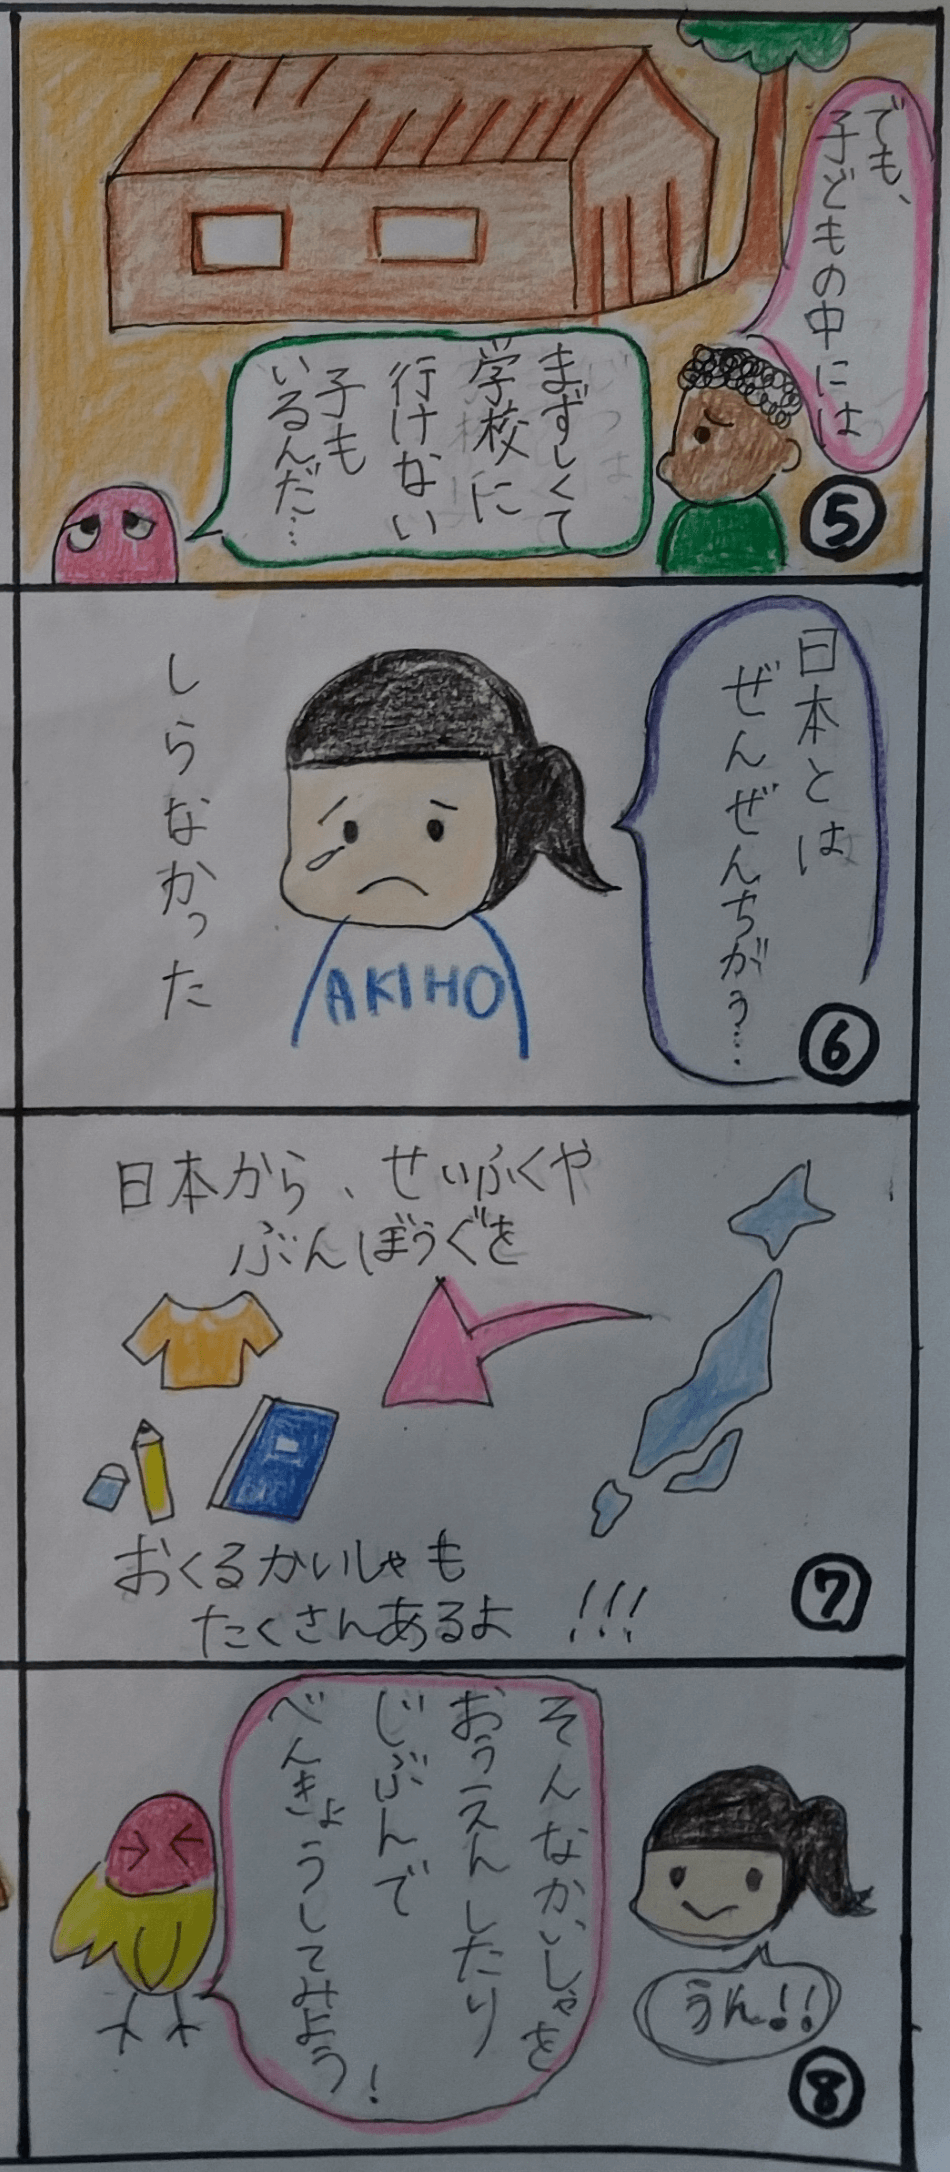 でも、
子どもの中には
まずしくて
学校に
行けない
子も
いるんだ…
⑤
日本とは
ぜんぜんちがう…
しらなかった
AKIHO
⑥
日本から、せいふくや
ぶんぼうぐを
おくるかいしゃも
たくさんあるよ!!!
⑦
そんなかいしゃを
おうえんしたり
じぶんで
べんきょうしてみよう!
うん!!
⑧